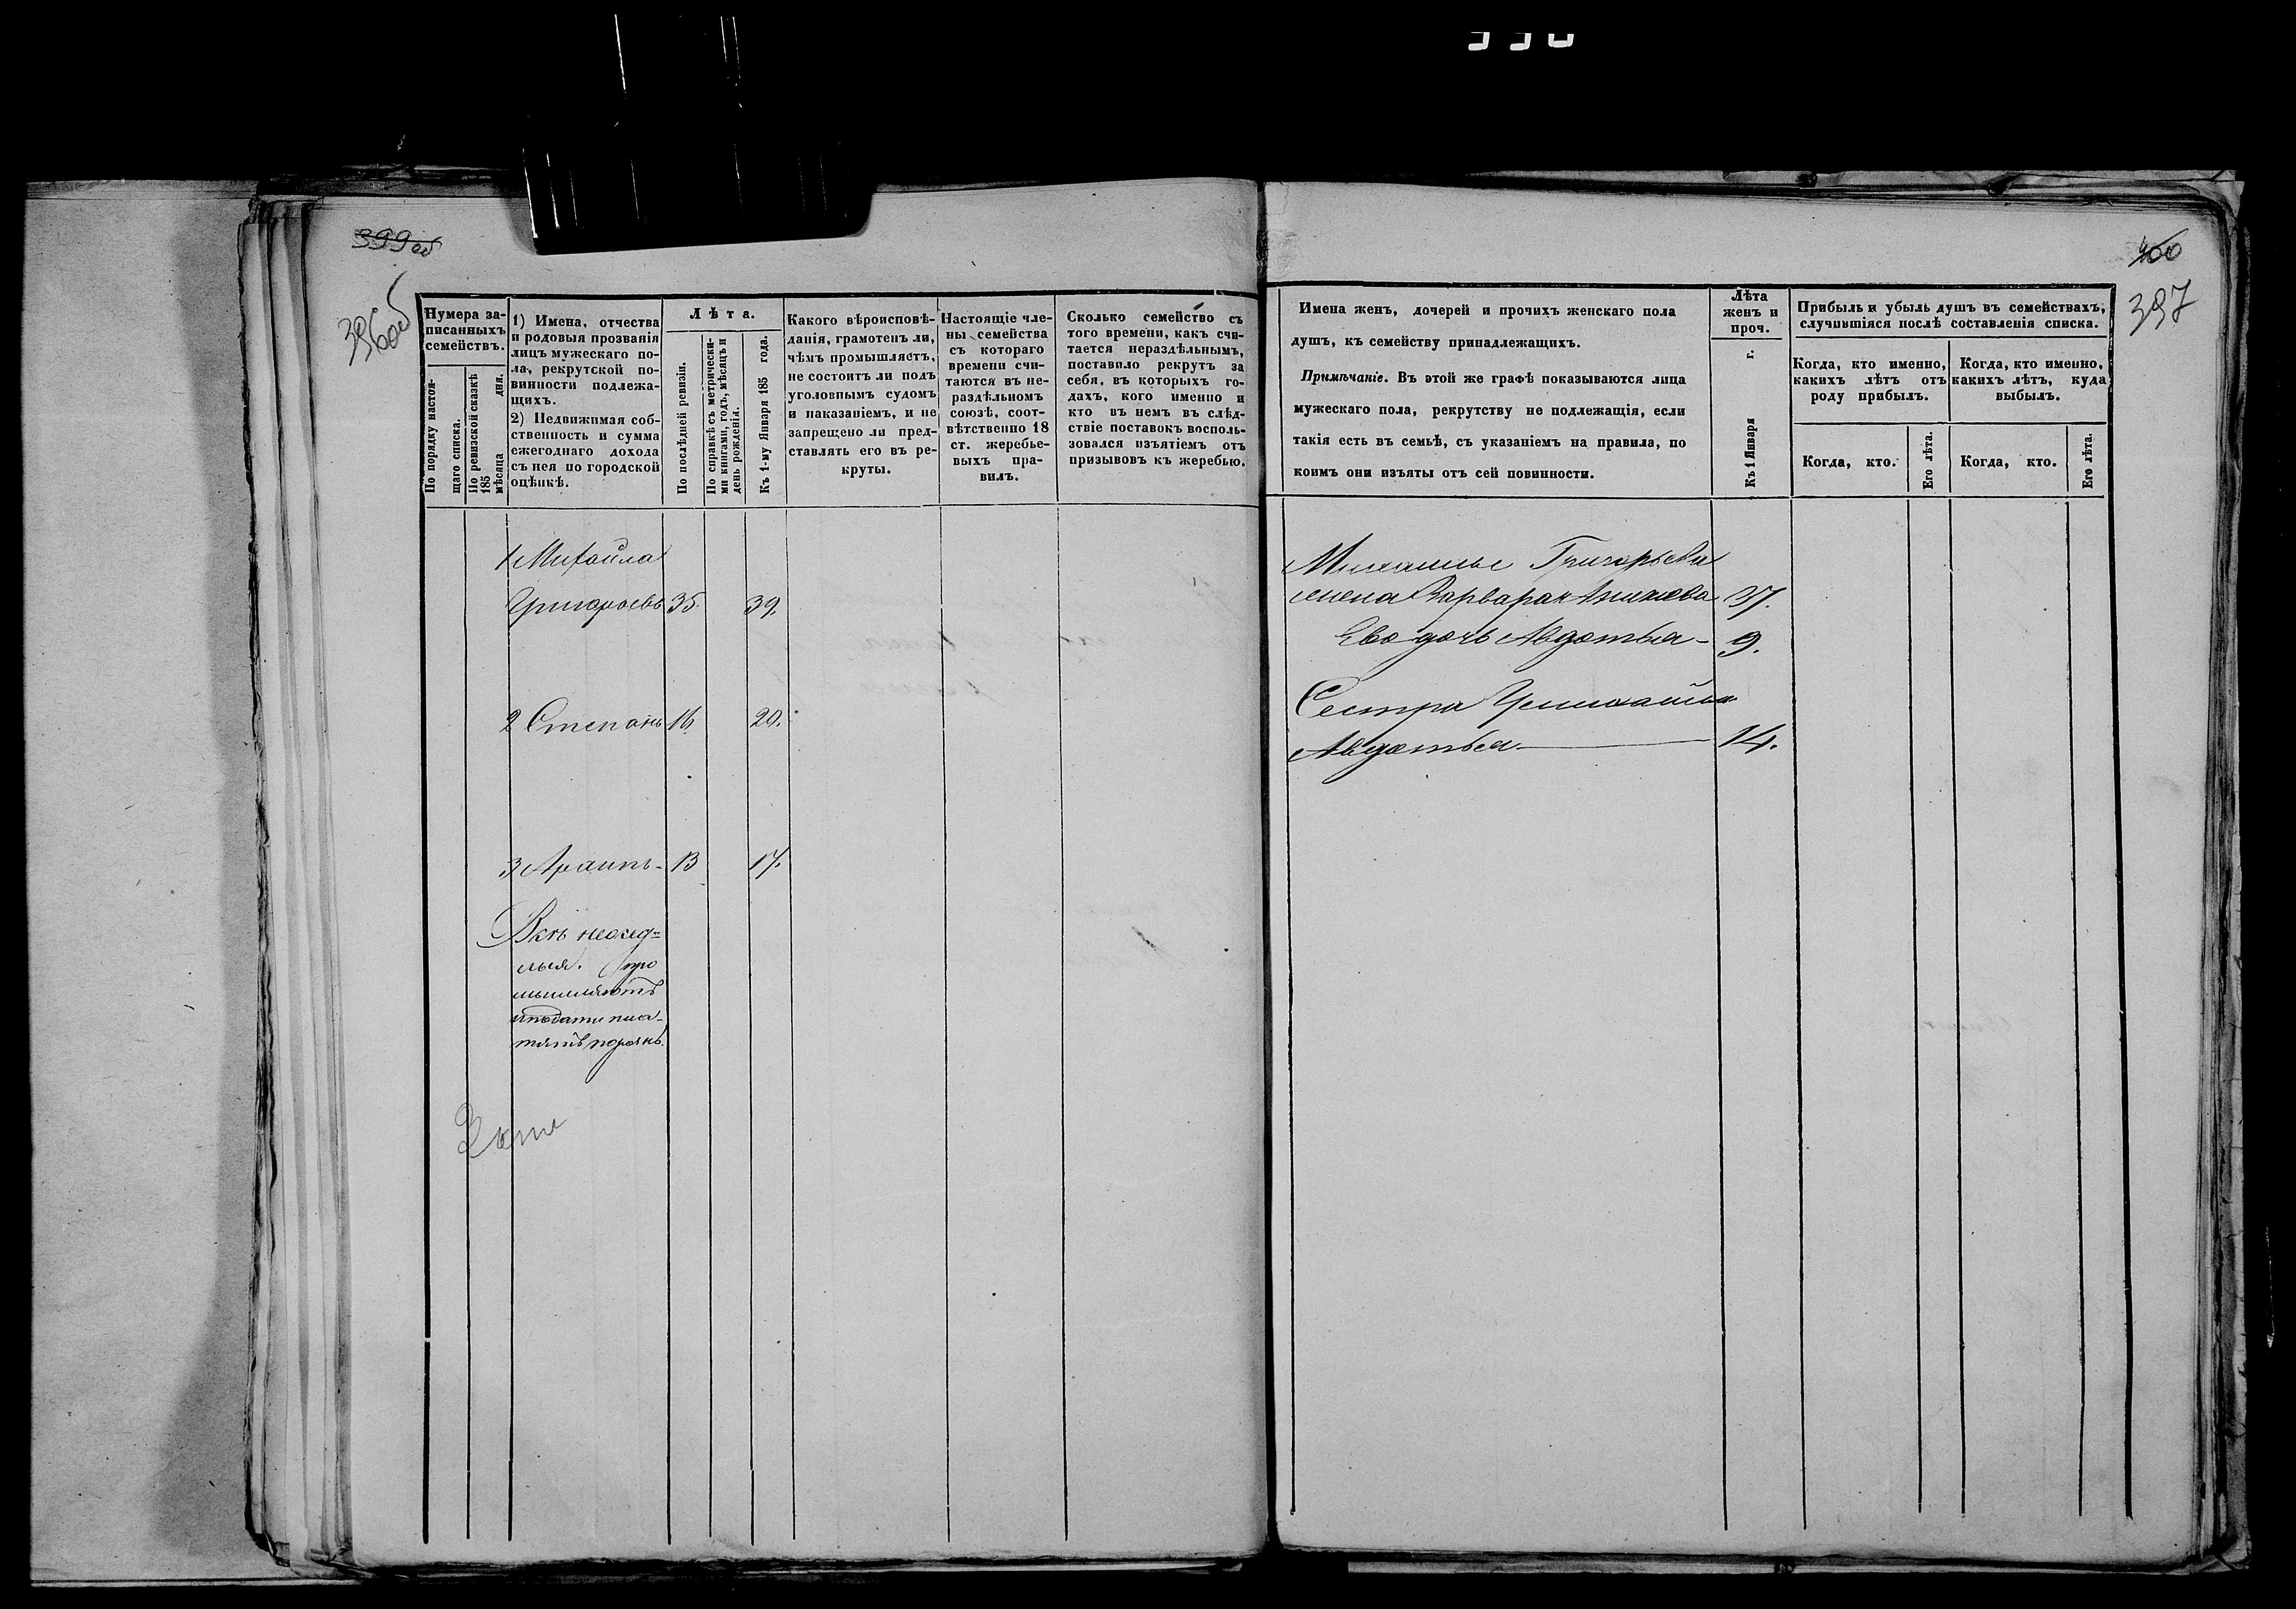 399 об
396 об
Нумера за-
писанныхъ
семействъ.
По порядку настоя-
щаго списка.
По ревизской сказкѣ
185
мѣсяца дня.
1) Имена, отчества
и родовыя прозванія
лицъ мужескаго по-
ла, рекрутской по-
винности подлежа-
щихъ.
2) Недвижимая соб-
ственность и сумма
ежегоднаго дохода
съ нея по городской
оцѣнкѣ.
Лѣта.
По послѣдней ревизіи.
По справкѣ съ метрически-
ми книгами, годъ, мѣсяцъ и
день рожденія.
Къ 1-му Января 185 года.
Какого вѣроисповѣ-
данія, грамотенъ ли,
чѣмъ промышляетъ,
не состоитъ ли подъ
уголовнымъ судомъ
и наказаніемъ, и не
запрещено ли пред-
ставлять его въ ре-
круты.
Настоящіе чле-
ны семейства
съ котораго
времени счи-
таются въ не-
раздѣльномъ
союзѣ, соот-
вѣтственно 18
ст. жеребье-
выхъ пра-
вилъ.
Сколько семейство съ
того времени, какъ счи-
тается нераздѣльнымъ,
поставило рекрутъ за
себя, въ которыхъ го-
дахъ, кого именно и
кто въ немъ въ слѣд-
ствіе поставокъ восполь-
зовался изъятіемъ отъ
призывовъ къ жеребью.
1 Михайла
Григорьевъ 35. 39.
2 Степанъ 16 20.
3 Архипъ - 13 17.
мышляютъ
400
397
Имена женъ, дочерей и прочихъ женскаго пола
душъ, къ семейству принадлежащихъ.
Примѣчаніе. Въ этой же графѣ показываются лица
мужескаго пола, рекрутству не подлежащія, если
такія есть въ семьѣ, съ указаніемъ на правила, по
коимъ они изъяты отъ сей повинности.
Лѣта
женъ и
проч.
Къ 1 Января г.
Прибыль и убыль душъ въ семействахъ,
случившіяся послѣ составленія списка.
Когда, кто именно,
какихъ лѣтъ отъ
роду прибылъ.
Когда, кто именно,
какихъ лѣтъ, куда
выбылъ.
Когда, кто.
Его лѣта.
Когда, кто.
Его лѣта.
Григорьева
жена Варвара 37.
Его дочь Авдотья - 9.
Сестра
Авдотья 14.